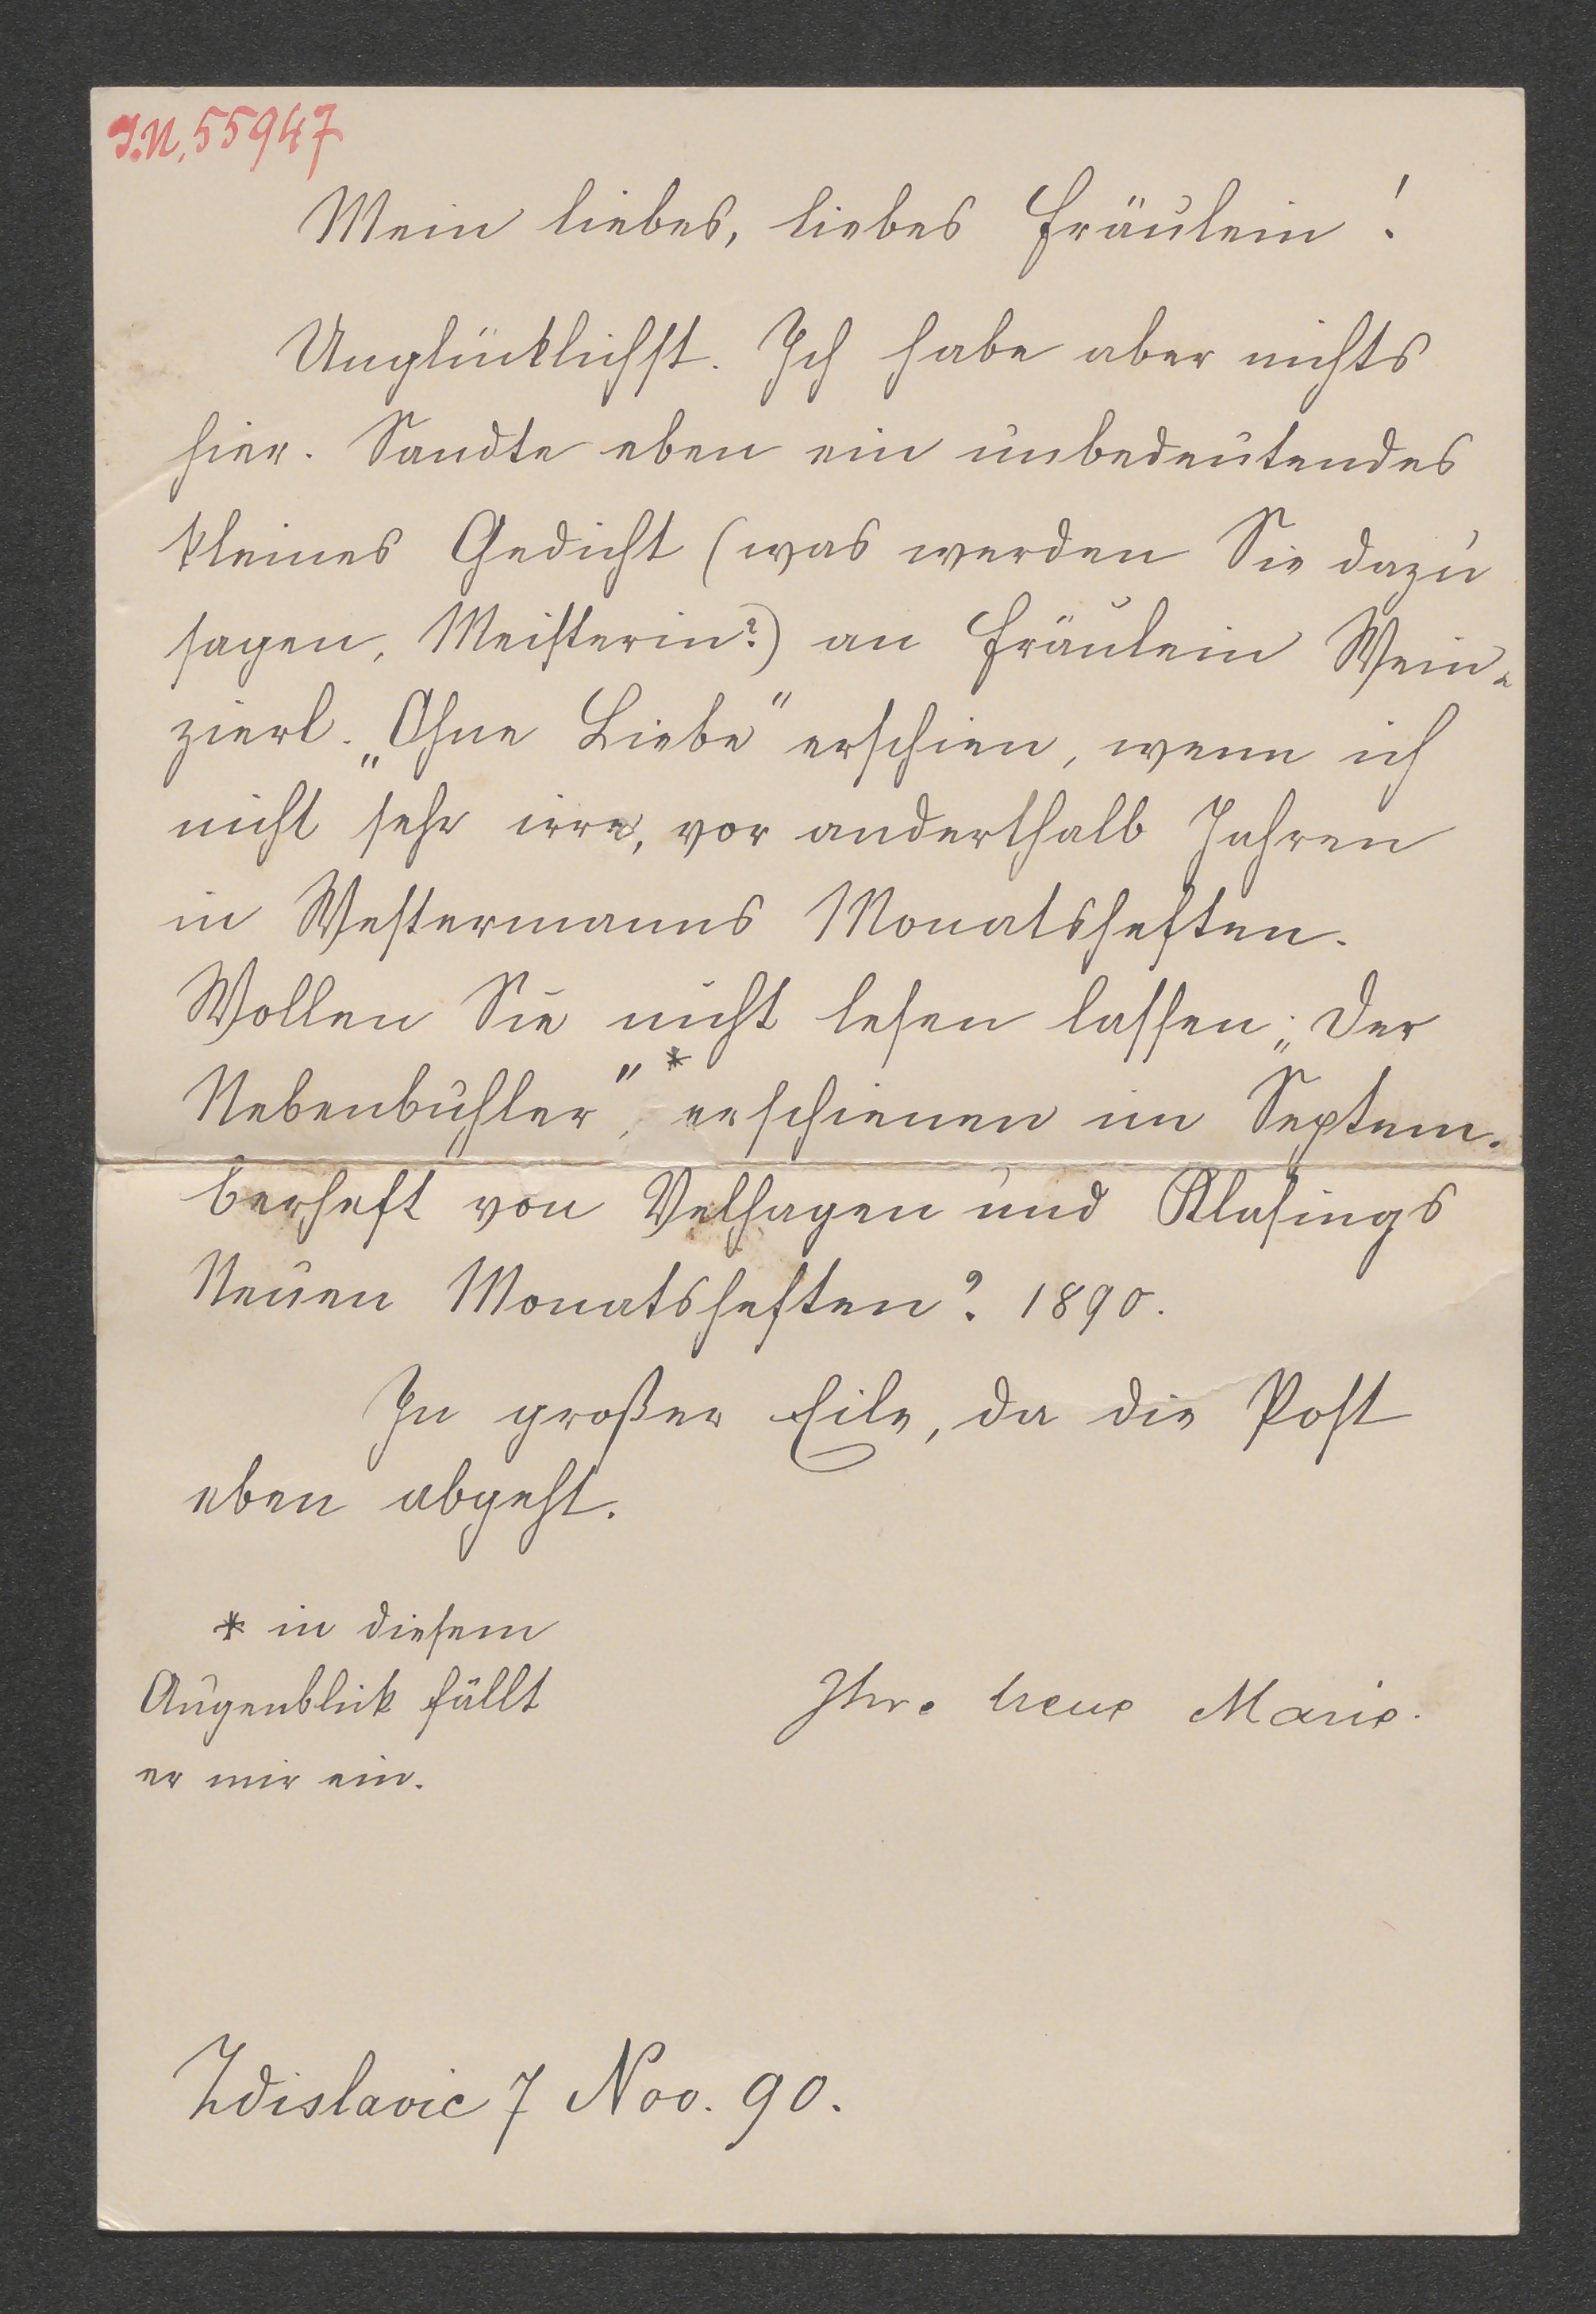 I.N. 55947
Mein liebes, liebes Fräulein!
Unglücklichst. Ich habe aber nichts
hier. Sandte eben ein unbedeutendes
kleines Gedicht (was werden Sie dazu
sagen, Meisterin?) an Fräulein Wein-
zierl. „Ohne Liebe" erschien, wenn ich
nicht sehr irre, vor anderthalb Jahren
in Westermanns Monatsheften.
Wollen Sie nicht lesen lassen: „Der
Nebenbuhler",* erschienen im Septem-
berheft von Velhagen und Klasings
Neuen Monatsheften? 1890.
In großer Eile, da die Post
eben abgeht.
* in diesem
Augenblick fällt
er mir ein.
Ihre treue Marie.
Zdislavic 7 Nov. 90.